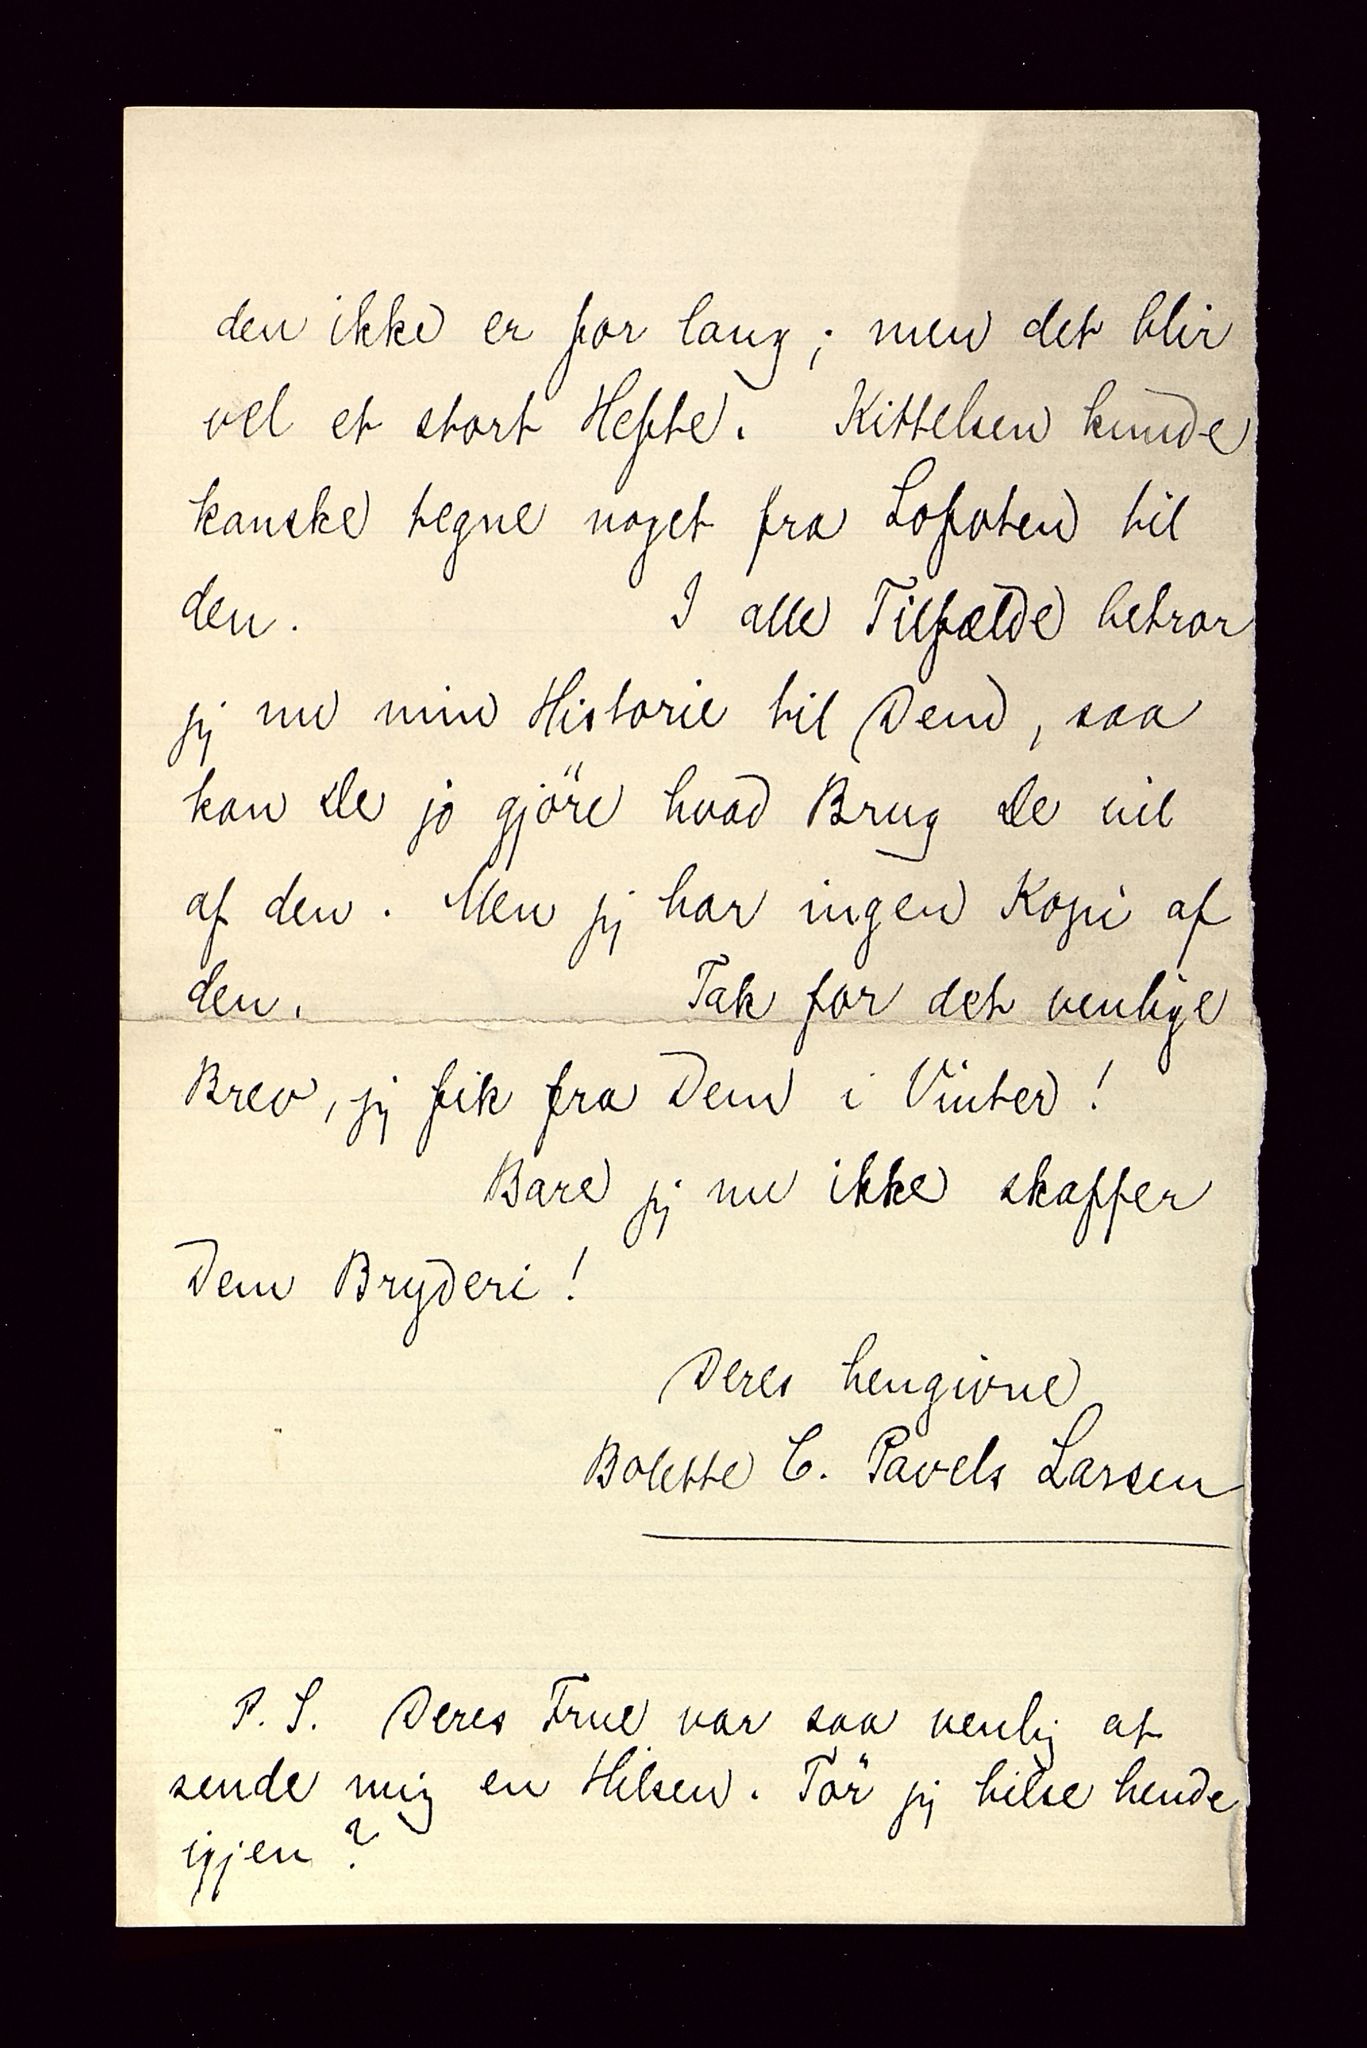 den ikke er for lang; men det blir
vel et stort Hefte. Kittelsen kunde
kanske tegne noget fra Lofoten til
den. I alle Tilfælde betror
jeg nu min Historie til Dem, saa
kan De jo gjöre hvad Brug De vil
af den. Men jeg har ingen Kopi af
den. Tak for det venlige
Brev, jeg fik fra Dem i Vinter!
Bare jeg nu ikke skaffer
Dem Bryderi!
Deres hengivne
Bolette C. Pavels Larsen
P. S. Deres Frue var saa venlig at
sende mig en Hilsen. Tör jeg hilse hende
igjen?